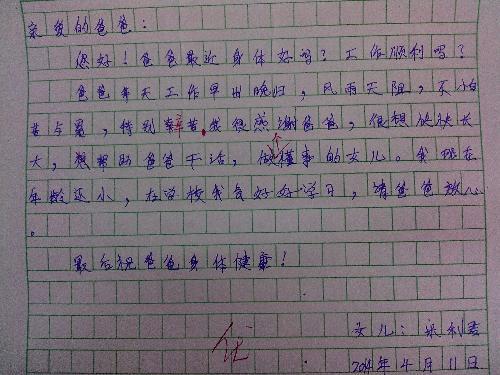 亲爱的爸爸：
您好！爸爸最近身体好吗？工作顺利吗？
爸爸每天工作早出晚归，风雨无阻，不怕
苦与累，特别辛苦。我很感谢爸爸，很想快快长
大，想帮助爸爸干活，做懂事的女儿。我现在
年龄还小，在学校我会好好学习，请爸爸放心
。
最后祝爸爸身体健康！
女儿：
优
2014年4月11日